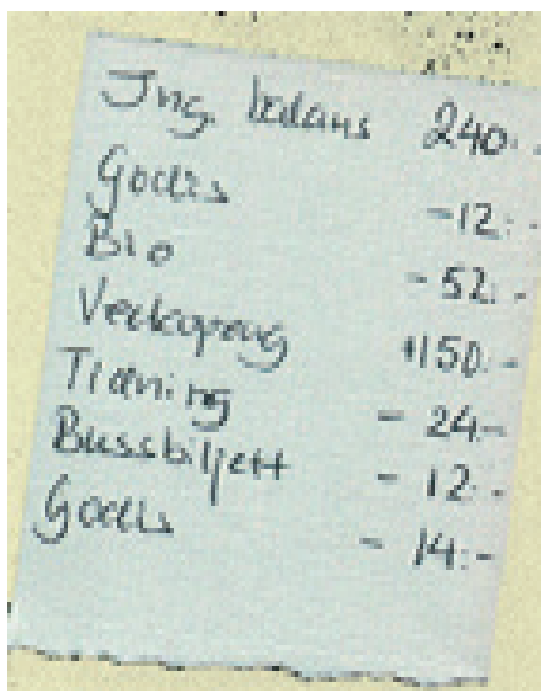 Ing. balans 240:-
Godis -12:-
Bio -52:-
Veckopeng +150:-
Träning - 24:-
Bussbiljett - 12:-
Godis - 14:-